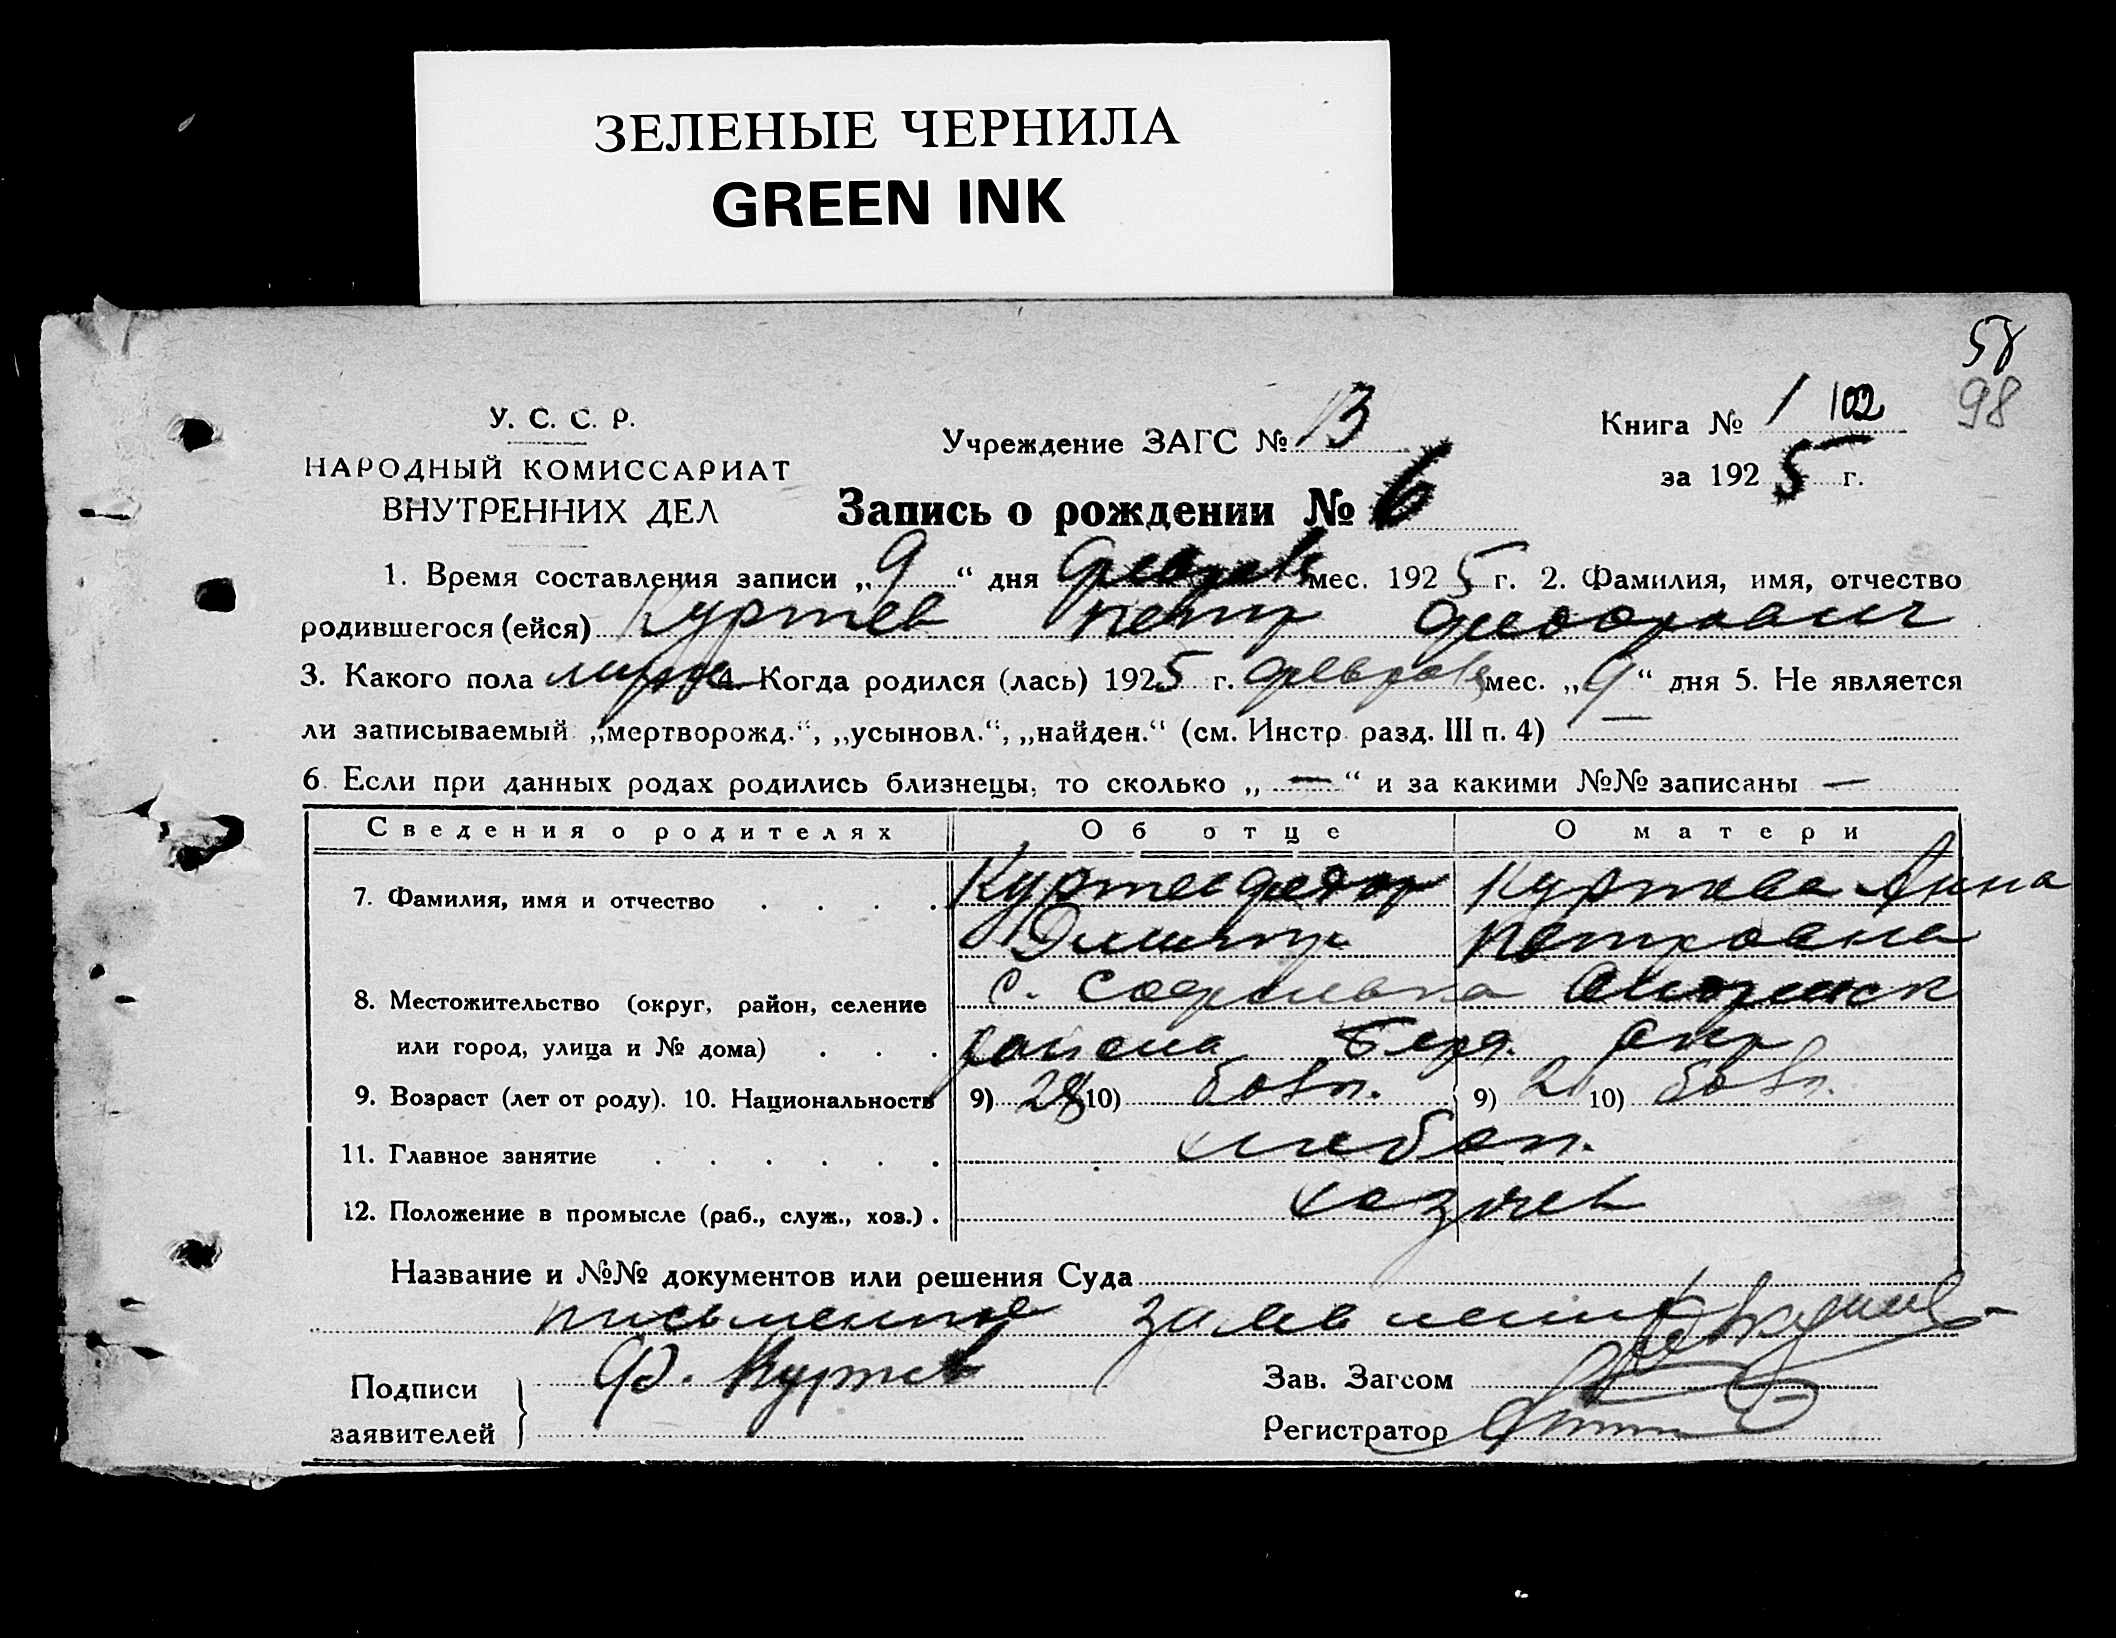 ЗЕЛЕНЫЕ ЧЕРНИЛА
GREEN INK
58
98
У. С. С. Р.
НАРОДНЫЙ КОМИССАРИАТ
ВНУТРЕННИХ ДЕЛ
Учреждение ЗАГС № 13
Книга № 1 102
за 1925 г.
Запись о рождении № 6
1. Время составления записи „9“ дня февраля мес. 1925 г. 2. Фамилия, имя, отчество
родившегося (ейся) Куртев Петр Федорович
3. Какого пола 4. Когда родился (лась) 1925 г. февраля мес. „9“ дня 5. Не является
ли записываемый „мертворожд.“, „усыновл.“, „найден.“ (см. Инстр. разд. III п. 4) —
6. Если при данных родах родились близнецы, то сколько „—“ и за какими №№ записаны —
Сведения о родителях Об отце О матери
7. Фамилия, имя и отчество . . . . Куртев Федор Куртева Анна
Дмитр. Петровна
8. Местожительство (округ, район, селение с. Софиевка
или город, улица и № дома) . . . района Берд. окр
9. Возраст (лет от роду). 10. Национальность 9) 28 10) болг. 9) 21 10) болг.
11. Главное занятие . . . . . . хлебоп.
12. Положение в промысле (раб., служ., хоз.) . хозяев
Название и №№ документов или решения Суда
письменное заявление
Подписи
заявителей
Ф. Куртев
Зав. Загсом
Регистратор